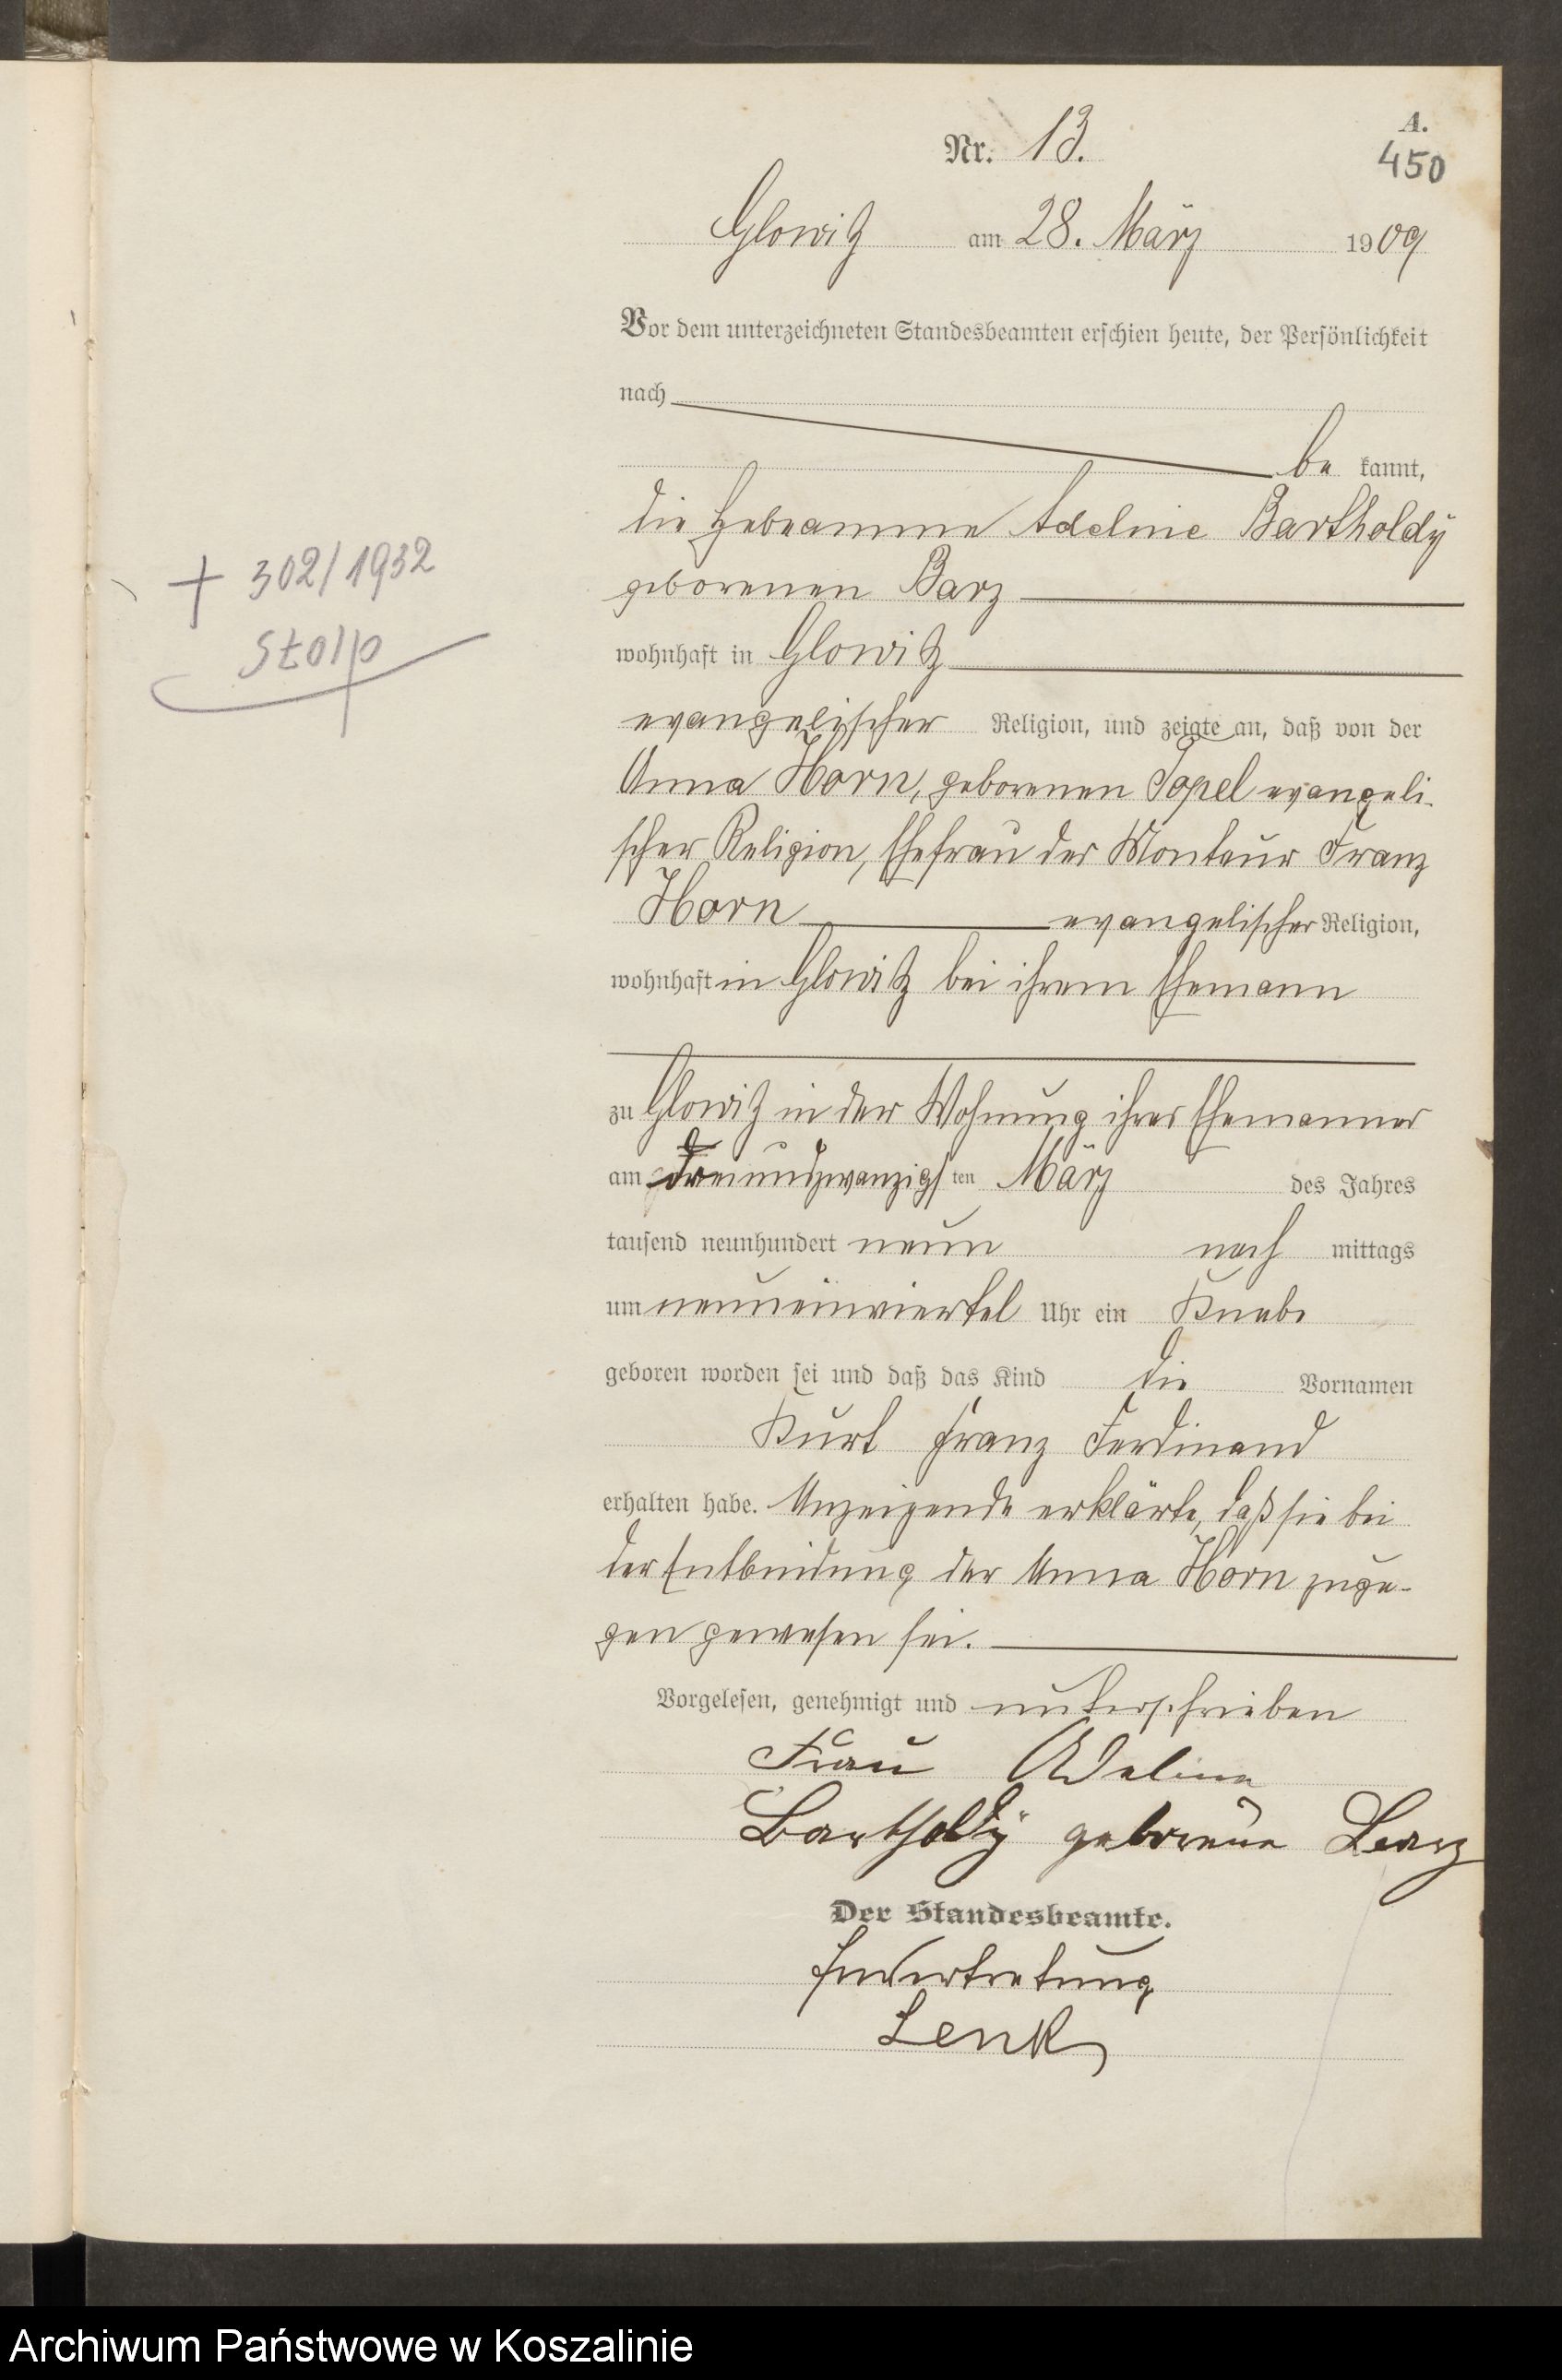 A.
Nr. 13.
450
Glowitz am 28. März 1909
Vor dem unterzeichneten Standesbeamten erschien heute, der Persönlichkeit
nach
be kannt,
die Hebeamme Adeline Bartholdy
geborenen Barz
+ 302/1932
Stolp
wohnhaft in Glowitz
evangelischer Religion, und zeigte an, daß von der
Anna Horn, geborenen Topel evangeli-
scher Religion, Ehefrau des Monteur Franz
Horn evangelischer Religion,
wohnhaft in Glowitz bei ihrem Ehemann
zu Glowitz in der Wohnung ihres Ehemannes
am dreiundzwanzigsten März des Jahres
tausend neunhundert neun nach mittags
um neuneinviertel Uhr ein Knabe
geboren worden sei und daß das Kind die Vornamen
Kurt Franz Ferdinand
erhalten habe. Anzeigende erklärte, daß sie bei
der Entbindung der Anna Horn zuge-
gen gewesen sei.
Vorgelesen, genehmigt und unterschrieben
Frau Adeline
Bartholdÿ geborene Barz
Der Standesbeamte.
In Vertretung
Lenk
Archiwum Państwowe w Koszalinie